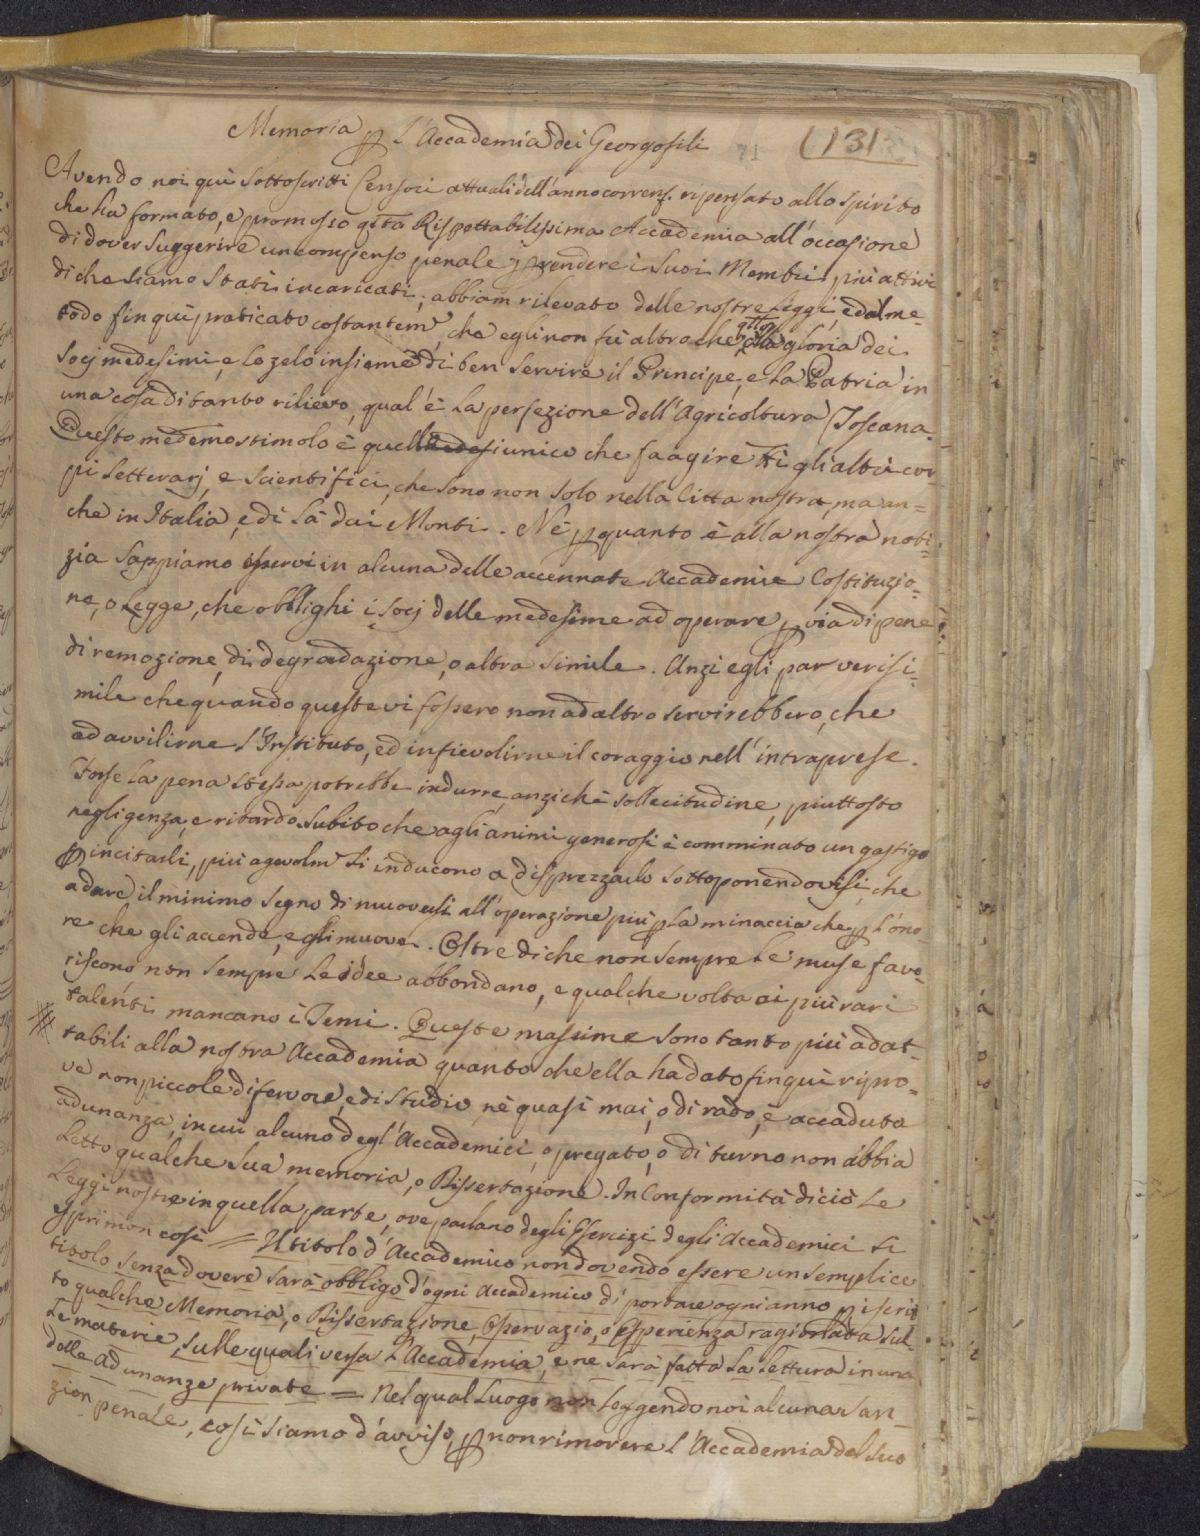 Memoria p l'Accademia dei Georgofili
71
(131
Avendo noi quì sottoscritti Censori attuali dell'anno corren. ripensato allo spirito
che ha formato, e promosso qta Rispettabilissima Accademia all'occasione
di dover suggerire un compenso penale p rendere i suoi Membri più attivi
di che siamo stati incaricati; abbiam rilevato dalle nostre Leggi, e dal me-
todo fin quì praticato costantem, che egli non fù altro che alla gloria dei
Socj medesimi, e lo zelo insieme di ben servire il Principe, e la Patria in
una cosa di tanto rilievo, qual'è la perfezione dell'Agricoltura Toscana.
Questo medemo stimolo è quell unico che fa agire tti gli altri cor
pi Letterarj, e scientifici, che sono non solo nella Città nostra, ma an=
che in Italia, e di là dai Monti. Nè p quanto è alla nostra noti-
zia sappiamo esservi in alcuna delle accennate Accademie Costituzio-
ne, o Legge, che obblighi i Socj delle medesime ad operare p via di pene
di remozione, di degradazione, o altra simile. Anzi egli par verisi-
mile che quando queste vi fossero non ad altro servirebbero, che
ad avvilirne l'Instituto, ed infievolirne il coraggio nell'intraprese.
Forse la pena stessa potrebbe indurre, anzichè sollecitudine, piuttosto
negligenza, e ritardo. Subito che agli animi generosi è comminato un gastigo
p incitarli, più agevolm si inducono a disprezzarlo sottoponendovisi, che
a dare il minimo segno di muoversi all'operazione più p la minaccia che p l'ono-
re che gli accende, e gli muove. Oltre di che non sempre le muse favo
riscono non sempre le idee abbondano, e qualche volta ai più rari
talenti mancano i Temi. Queste massime sono tanto più adat-
tabili alla nostra Accademia quanto che ella ha dato fin quì ripro-
ve non piccole di fervore, e di studio, nè quasi mai, o di rado, è accaduta
adunanza, in cui alcuno degl'Accademici, o pregato, o di turno non abbia
Letto qualche sua memoria, o Dissertazione. In Conformità di ciò le
Leggi nostre in quella parte, ove parlano degli Esercizi degli Accademici si
esprimon così = Il titolo d'Accademico non dovendo essere un semplice
titolo senza dovere sarà obbligo d'ogni Accademico di portare ogni anno p iscrit
to qualche Memoria, o Dissertazione, Osservazio, o Esperienza ragionata sul-
le materie, sulle quali versa l'Accademia, e ne sarà fatta la lettura in una
delle adunanze private = Nel qual luogo non leggendo noi alcuna san-
zion penale, così siamo d'avviso, p non rimovere l'Accademia dal suo